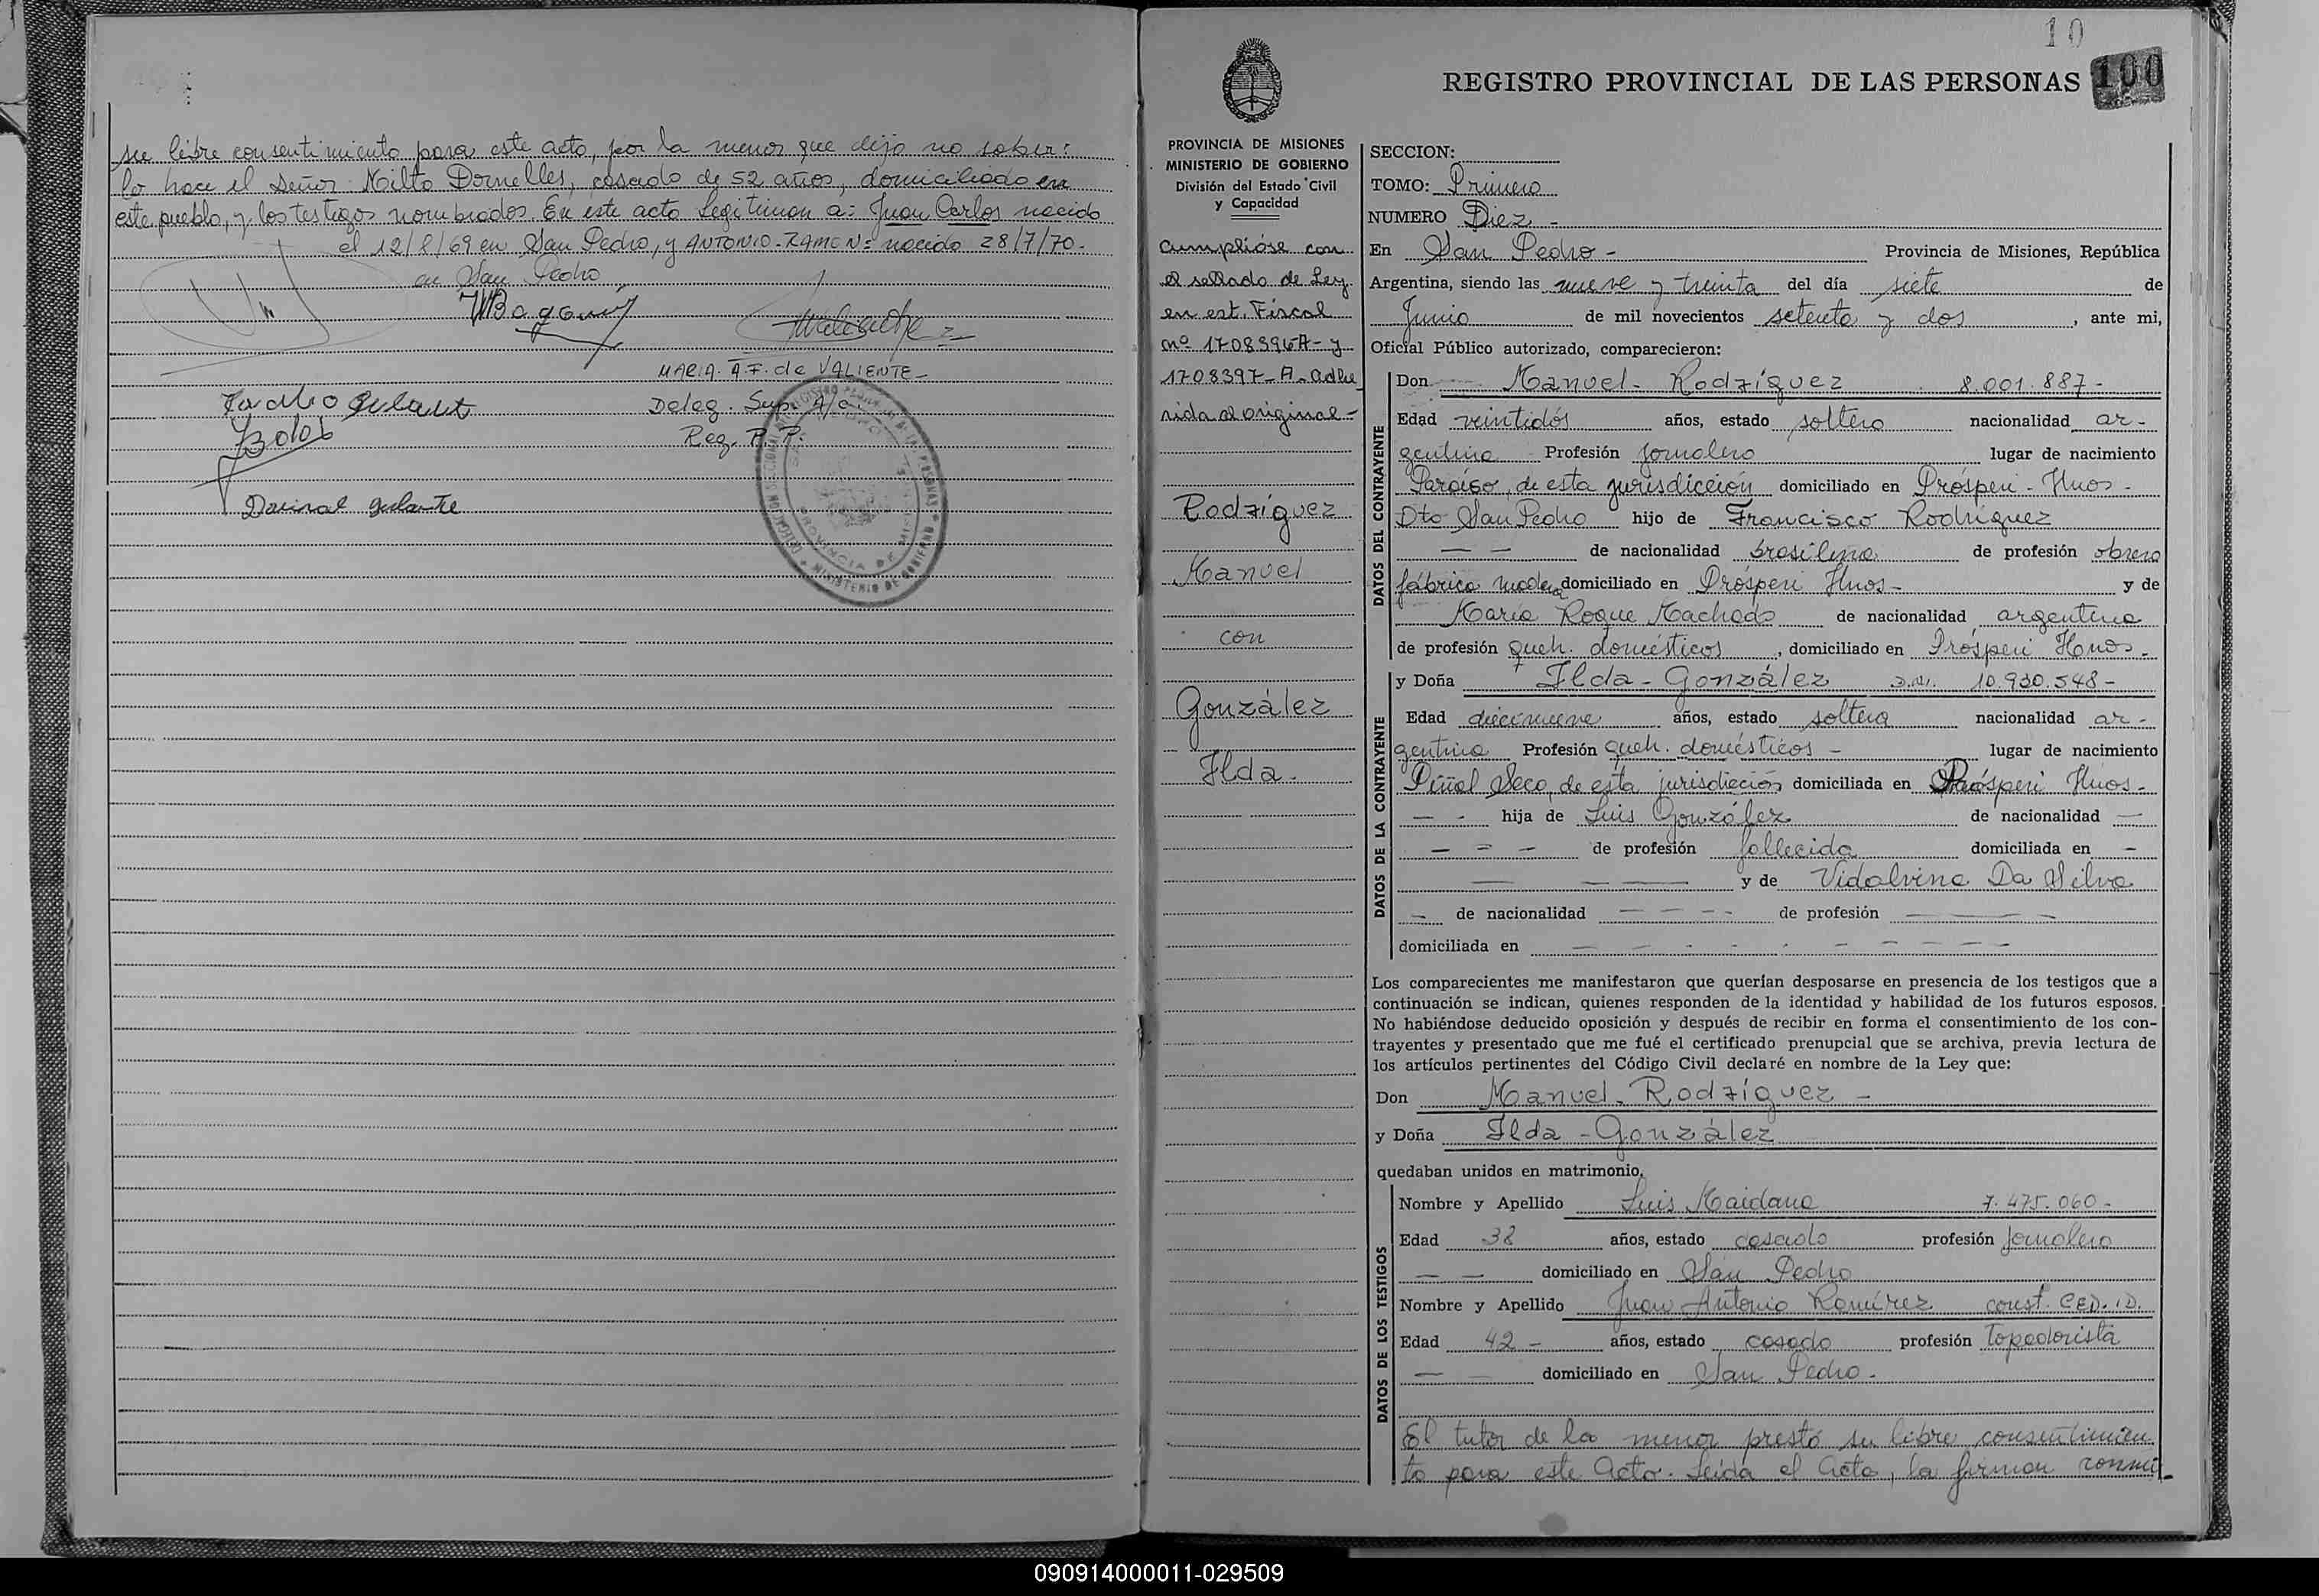 su libre consentimiento para este acto, por la menor que dijo no saber:
lo hace el Señor Nilto Dornelles, casado de 52 años, domiciliado en
este pueblo, y los testigos nombrados. En este acto Legitiman a: Juan Carlos nacido
el 12/8/69 en San Pedro, y ANTONIO-RAMON= nacido 28/7/70-
en San Pedro
MARIA. A.F. de VALIENTE-
Deleg. Sup. A/C
Reg. P. P.
10
REGISTRO PROVINCIAL DE LAS PERSONAS 100
PROVINCIA DE MISIONES
MINISTERIO DE GOBIERNO
División del Estado Civil
y Capacidad
Cumplióse con
el sellado de Ley
en est. Fiscal
nº 1708396A- y
1708397-A-adhe
rida al original-
Rodríguez
Manuel
con
González
Ilda-
SECCION:
TOMO: Primero
NUMERO Diez -
En San Pedro - Provincia de Misiones, República
Argentina, siendo las nueve y treinta del día siete de
Junio de mil novecientos setenta y dos, ante mi,
Oficial Público autorizado, comparecieron:
DATOS DEL CONTRAYENTE
Don Manuel - Rodríguez 8.001.887-
Edad veintidós años, estado soltero nacionalidad ar-
gentina Profesión jornalero lugar de nacimiento
Paraíso, de esta jurisdicción domiciliado en Prósperi - Hnos-
Dto San Pedro hijo de Francisco Rodríguez
— — de nacionalidad brasilena de profesión obrero
fábrica madera domiciliado en Prósperi Hnos- y de
María Roque Machado de nacionalidad argentina
de profesión queh. domésticos, domiciliado en Prósperi Hnos-
DATOS DE LA CONTRAYENTE
y Doña Ilda - González D.N.I. 10.930.548-
Edad diecinueve años, estado soltera nacionalidad ar-
gentina Profesión queh. domésticos - lugar de nacimiento
Piñal Seco, de esta jurisdicción domiciliada en Prósperi Hnos-
— - hija de Luis González de nacionalidad —
— - — de profesión fallecido domiciliada en -
— — — y de Vidalvina Da Silva
— de nacionalidad — — - - de profesión — — —
domiciliada en — — - - - - — — — —
Los comparecientes me manifestaron que querían desposarse en presencia de los testigos que a
continuación se indican, quienes responden de la identidad y habilidad de los futuros esposos.
No habiéndose deducido oposición y después de recibir en forma el consentimiento de los con-
trayentes y presentado que me fué el certificado prenupcial que se archiva, previa lectura de
los artículos pertinentes del Código Civil declaré en nombre de la Ley que:
Don Manuel - Rodríguez -
y Doña Ilda - González
quedaban unidos en matrimonio.
DATOS DE LOS TESTIGOS
Nombre y Apellido Luis Maidana 7.475.060-
Edad 38 años, estado casado profesión jornalero
— — domiciliado en San Pedro
Nombre y Apellido Juan Antonio Ramírez const. CED. ID.
Edad 42 - años, estado casado profesión Topadorista
— — domiciliado en San Pedro-
El tutor de la menor prestó su libre consentimien
to para este Acto. Leída el Acta, la firman conmi
090914000011-029509